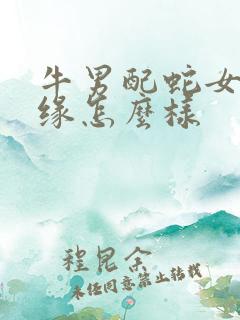 牛男配蛇女
缘怎麼樣
程昆余
未经同意禁止转载